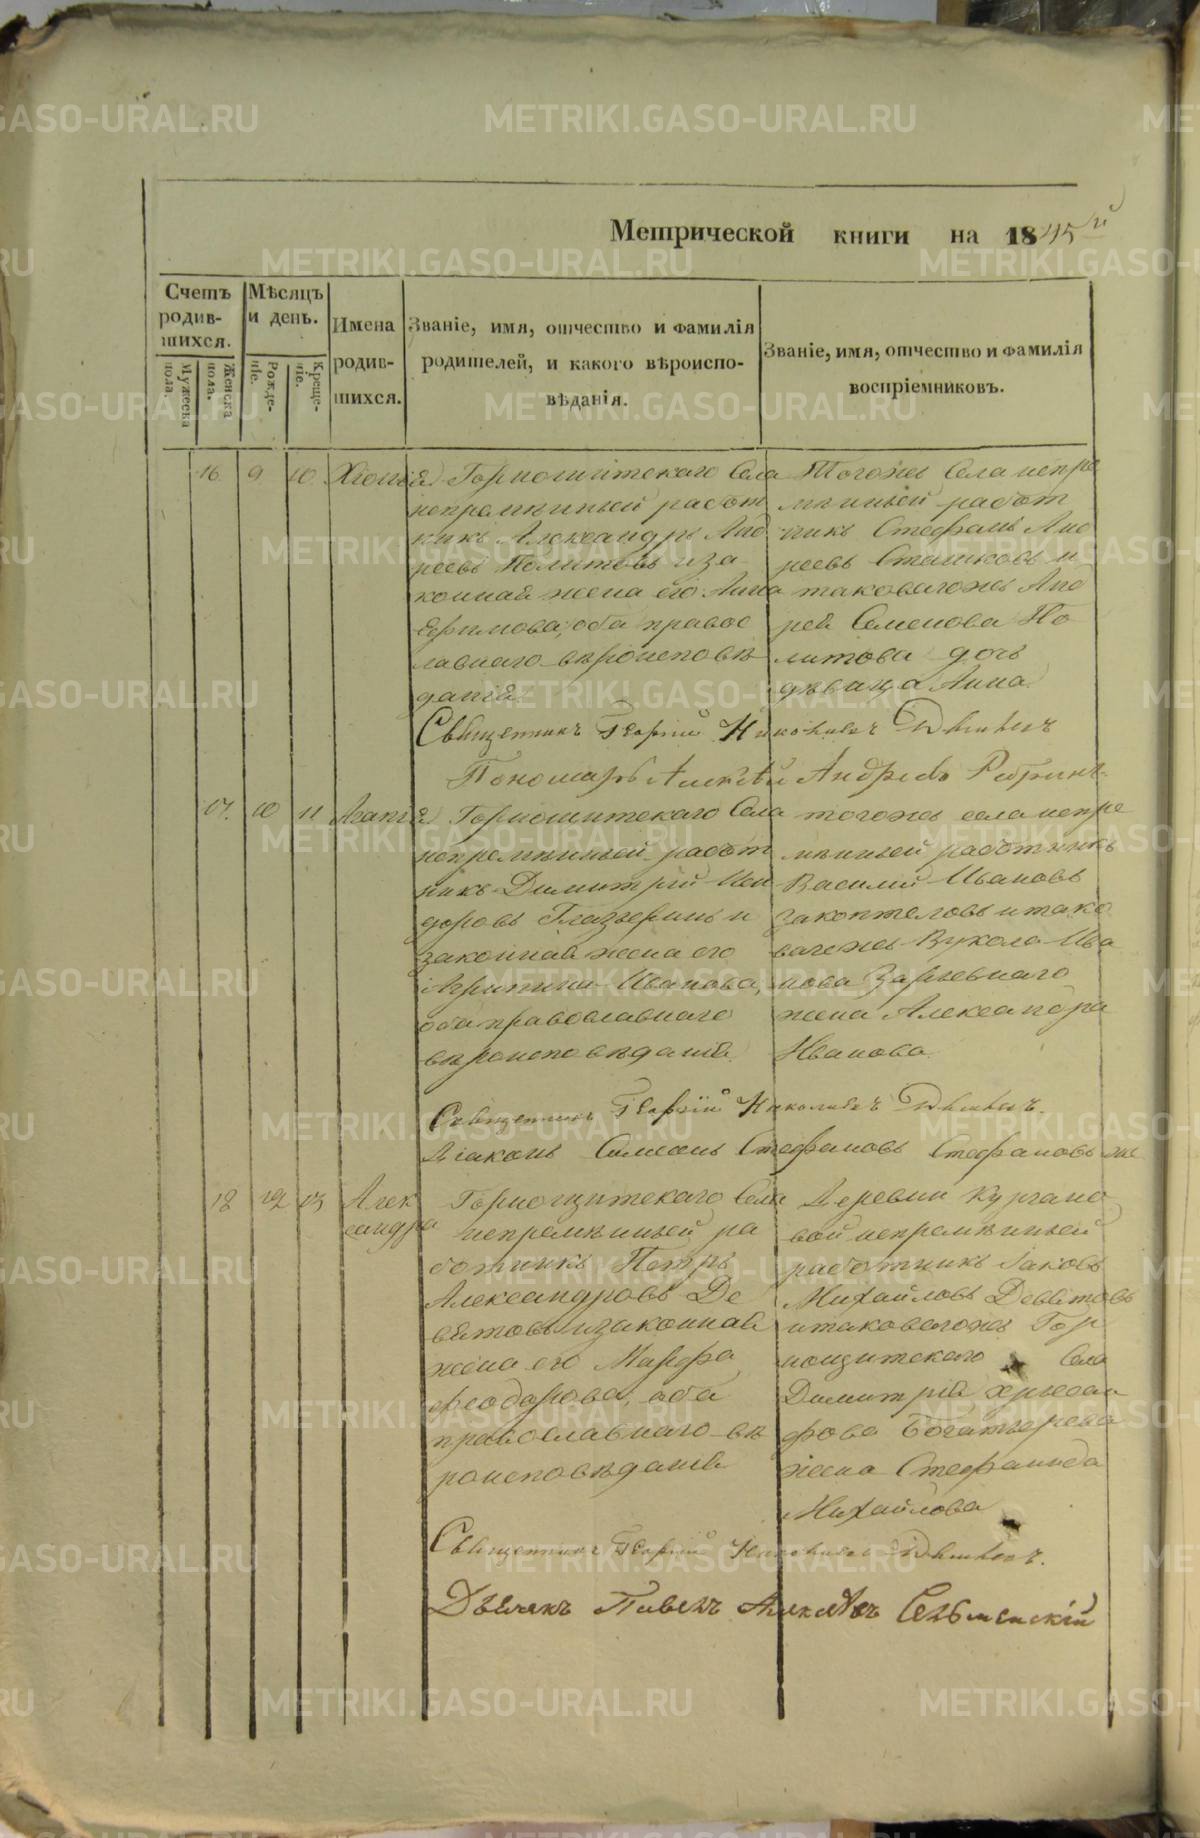 Метрической книги на 1845й
Счетъ родившихся.
Мужеска пола.
Женска пола.
Мѣсяцъ и день.
Рожденіе.
Крещеніе.
Имена родившихся.
Званіе, имя, отчество и фамилія
родителей, и какого вѣроиспо-
вѣданія.
Званіе, имя, отчество и фамилія
воспріемниковъ.
16 9 10 Хіонія
Горнощитскаго Села
непремѣнный работ
никъ Александръ Анд
реевъ Политовъ и за
конная жена его Анна
Ефимова, оба правос
лавнаго вѣроисповѣ
данія
Тогожъ Села непре
мѣнный работ
никъ Стефанъ Анд
реевъ Сташковъ и
таковагожъ Анд
рея Семенова По
литова дочь
дѣвица Анна.
Священникъ Георгій Николаевъ
Пономарь Алексѣй Андреевъ
17. 10 11 Агапія
Горнощитскаго Села
непремѣнный работ
никъ Димитрій Иси
доровъ Глазыринъ и
законная жена его
Агрипина Иванова,
оба православнаго
вѣроисповѣданія.
тогожъ села непре
мѣнный работникъ
Василий Ивановъ
Закоптеловъ и тако
вагожъ Вукола Ива
нова
жена Александра
Иванова.
Священникъ Георгій Николаевъ
Діаконъ Симеонъ Стефановъ Стефановъ
18 12 13 Алек
сандра
Горнощитскаго Села
непремѣнный ра
ботникъ Петръ
Александровъ Де
вятовъ и законная
жена его Марфа
Феодорова, оба
православнаго вѣ
роисповѣданія
Деревни Кургано
вой непремѣнный
работникъ Іаковъ
Михайловъ Девятовъ
и таковагожъ Гор
нощитскаго Села
Димитрія Хрисан
фова Богатырева
жена Стефанида
Михайлова
Священникъ Георгій Николаевъ
Дьячекъ Павелъ Алексѣевъ Сельменскій
METRIKI.GASO-URAL.RU